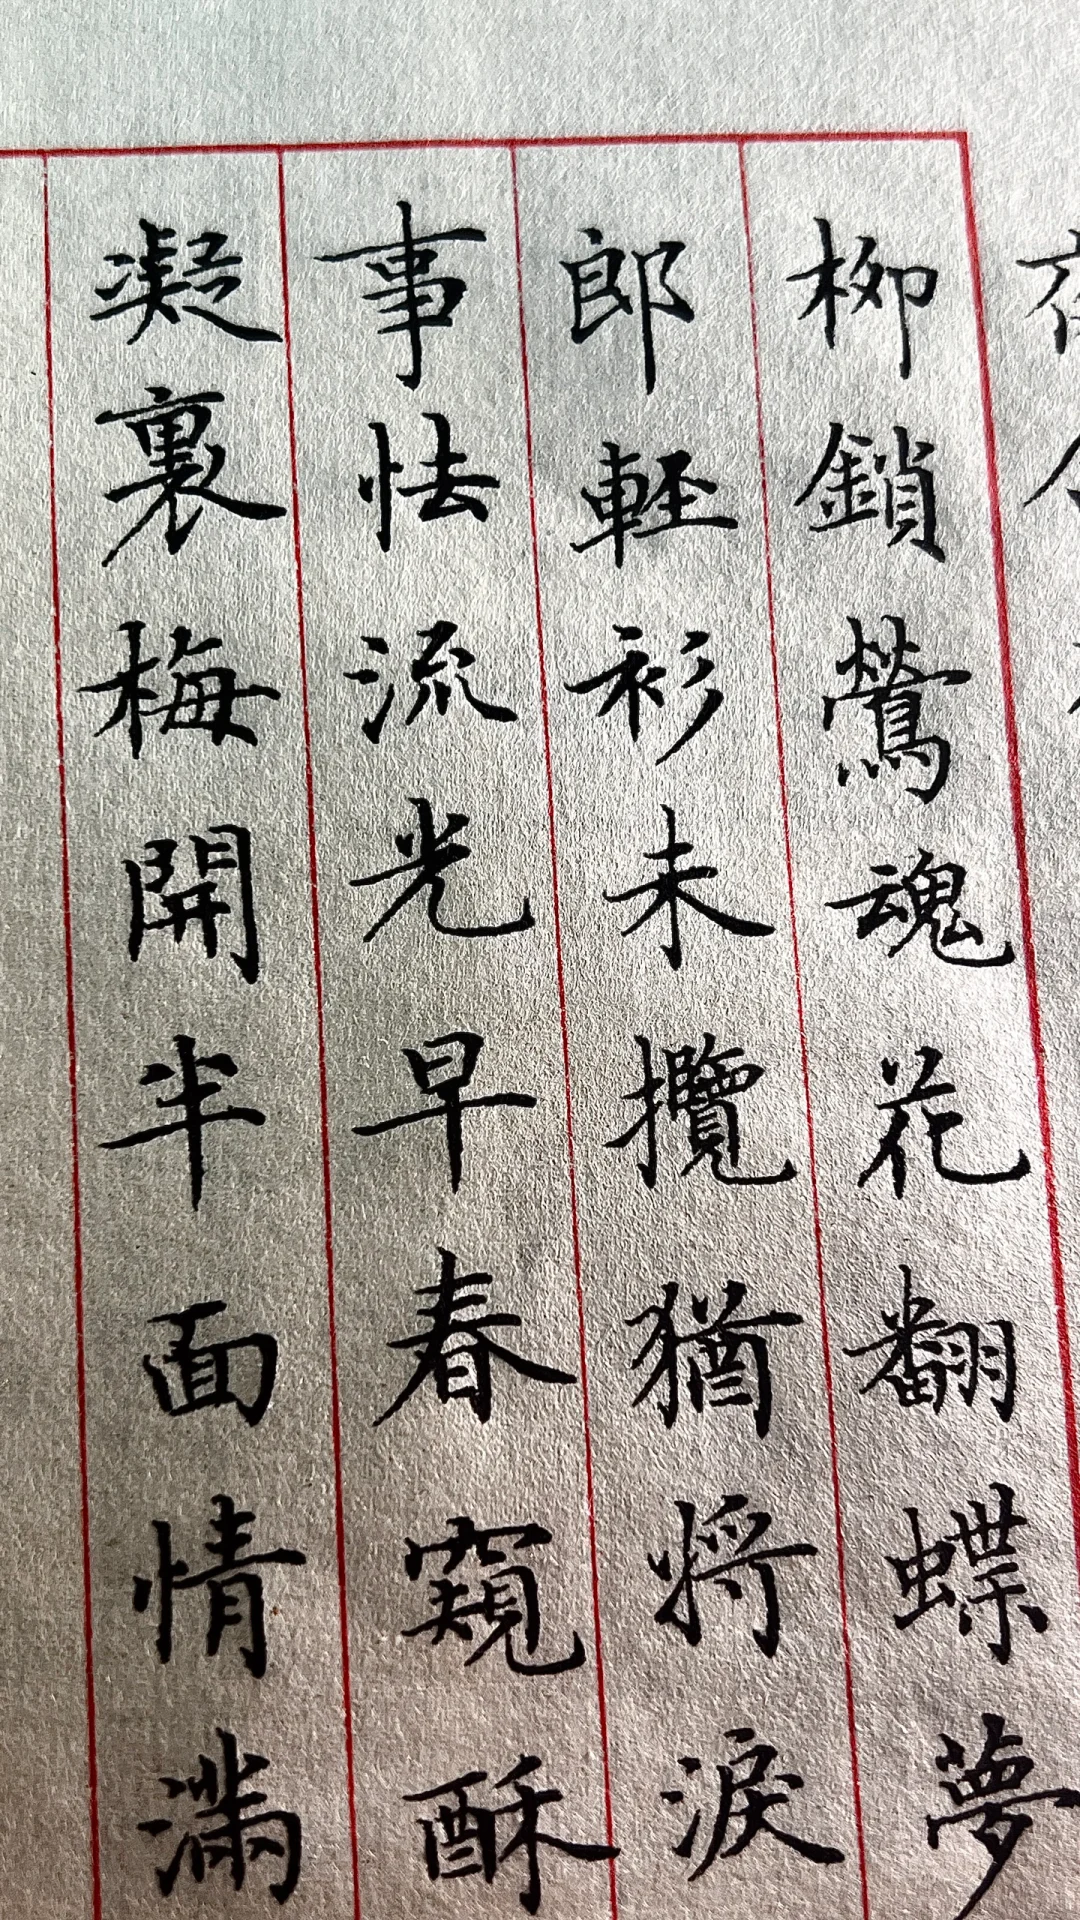 柳鎖鶯魂花翻蝶夢
郎輕衫未攬猶將淚
事怯流光早春窺酥
凝裏梅開半面情滿